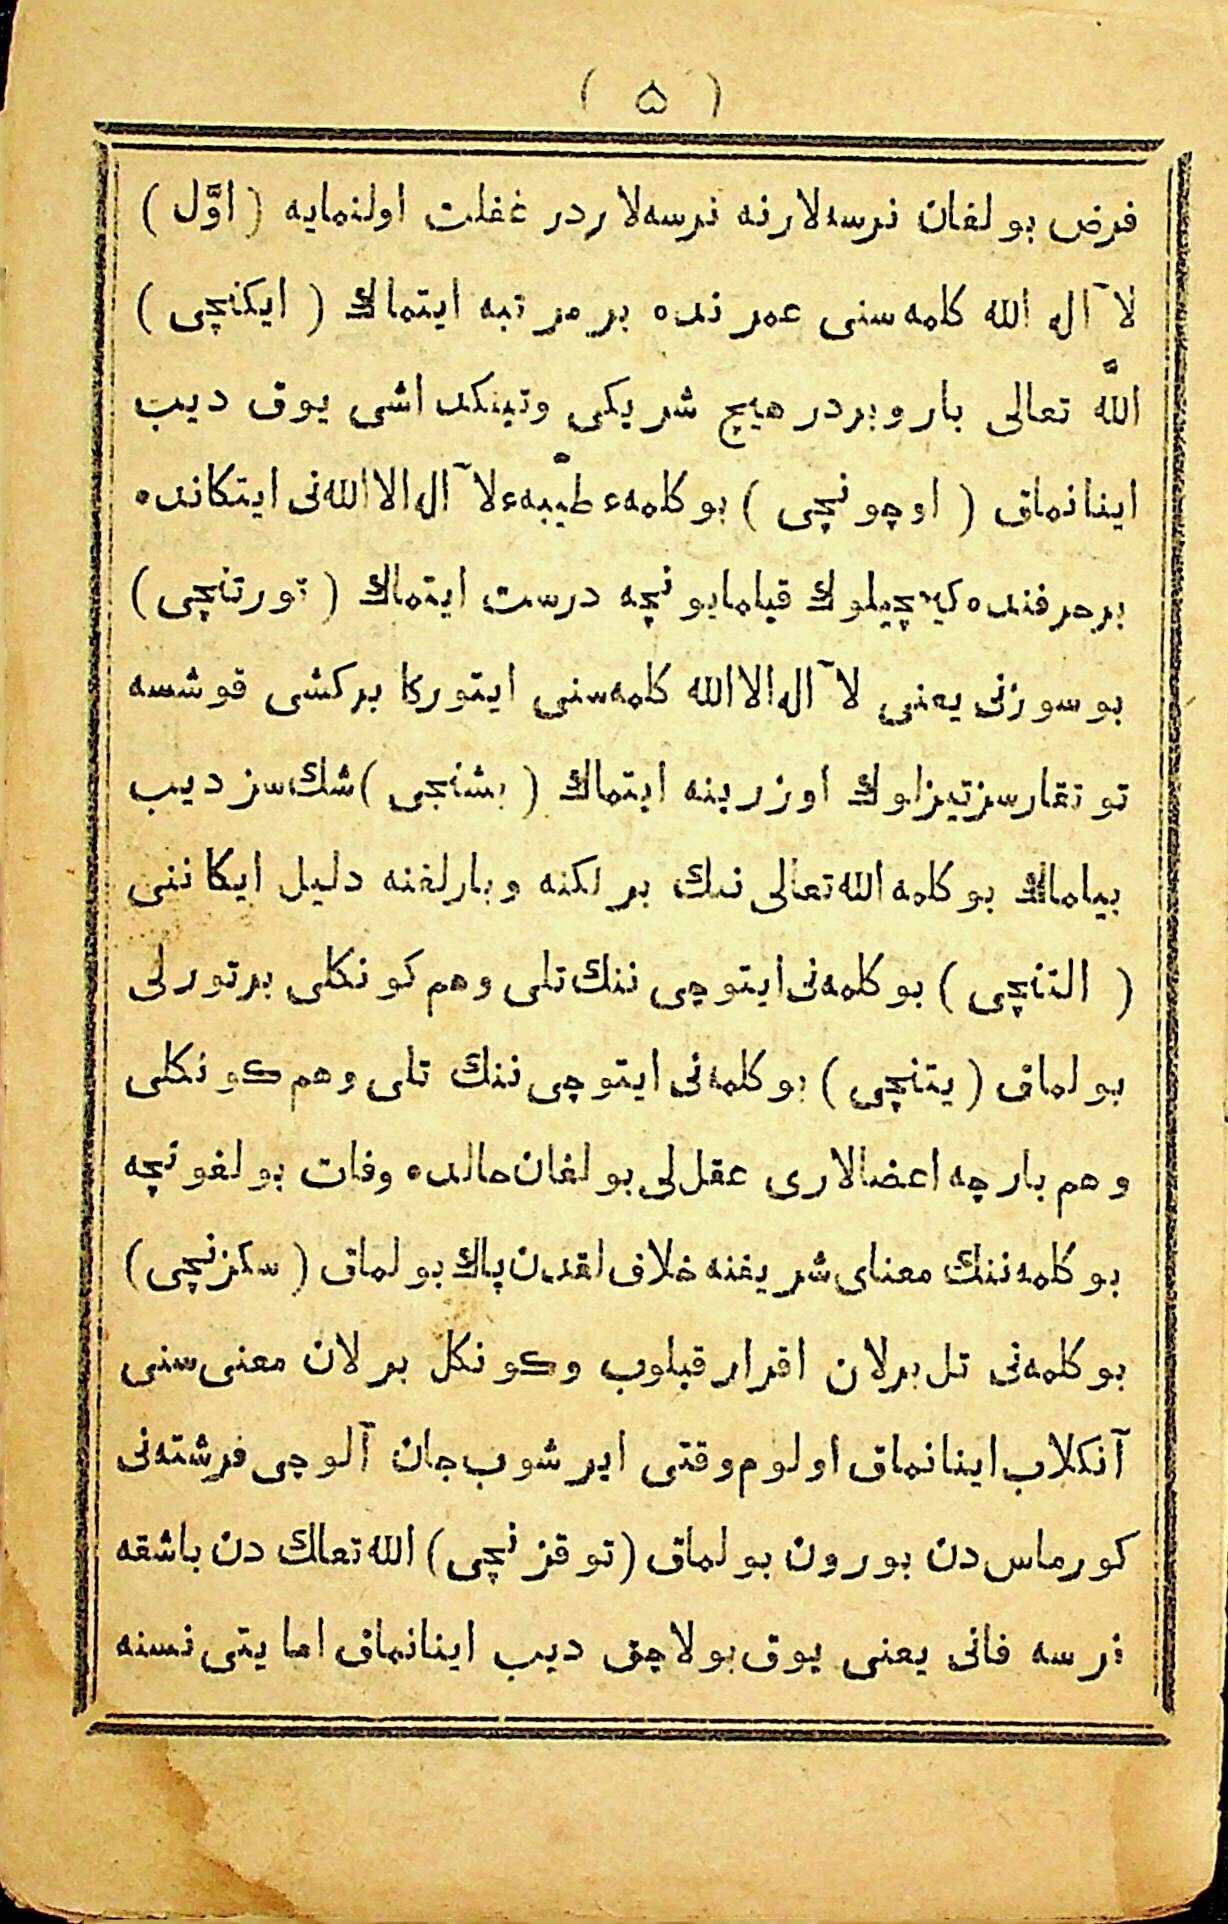 ( ۵ )
فرض بولغان نرسه‌لارنه نرسه‌لاردر غفلت اولنمایه ( اوّل )
لا آله الله كلمه‌سنی عمرنده بر مرتبه ایتماك ( ایكنچی )
اللّه تعالی بار و بردر هیچ شریكی و تینكداشی یوق دیب
اینانماق ( اوچونچی ) بو كلمهء طیّبهء لا آله الا الله‌نی ایتكانده
بر حرفنده كیمچیلوك قیلمایونچه درست ایتماك ( تورتنچی )
بو سوزنی یعنی لا آله الا الله كلمه‌سنی ایتورگا بر كشی قوشسه
توتقارسز تیزلوك اوزرینه ایتماك ( بشنچی ) شك سز دیب
بیلماك بو كلمه الله تعالی ننك برلكنه و بارلغنه دلیل ایكاننی
( التنچی ) بو كلمه‌نی ایتوچی ننك تلی و هم كونكلی بر تورلی
بولماق ( یتنچی ) بو كلمه‌نی ایتوچی ننك تلی و هم كونكلی
و هم بارچه اعضالاری عقل‌لی بولغان حالده وفات بولغونچه
بو كلمه‌ننك معنای شریفنه خلاف‌لقدن پاك بولماق ( سكزنچی )
بو كلمه‌نی تل برلان اقرار قیلوب و كونكل برلان معنی‌سنی
آنكلاب اینانماق اولوم وقتی ایرشوب جان آلوچی فرشته‌نی
كورماس‌دن بورون بولماق ( توقزنچی ) الله تعالی دن باشقه
نرسه فانی یعنی یوق بولاچق دیب اینانماق اما یتی نسنه